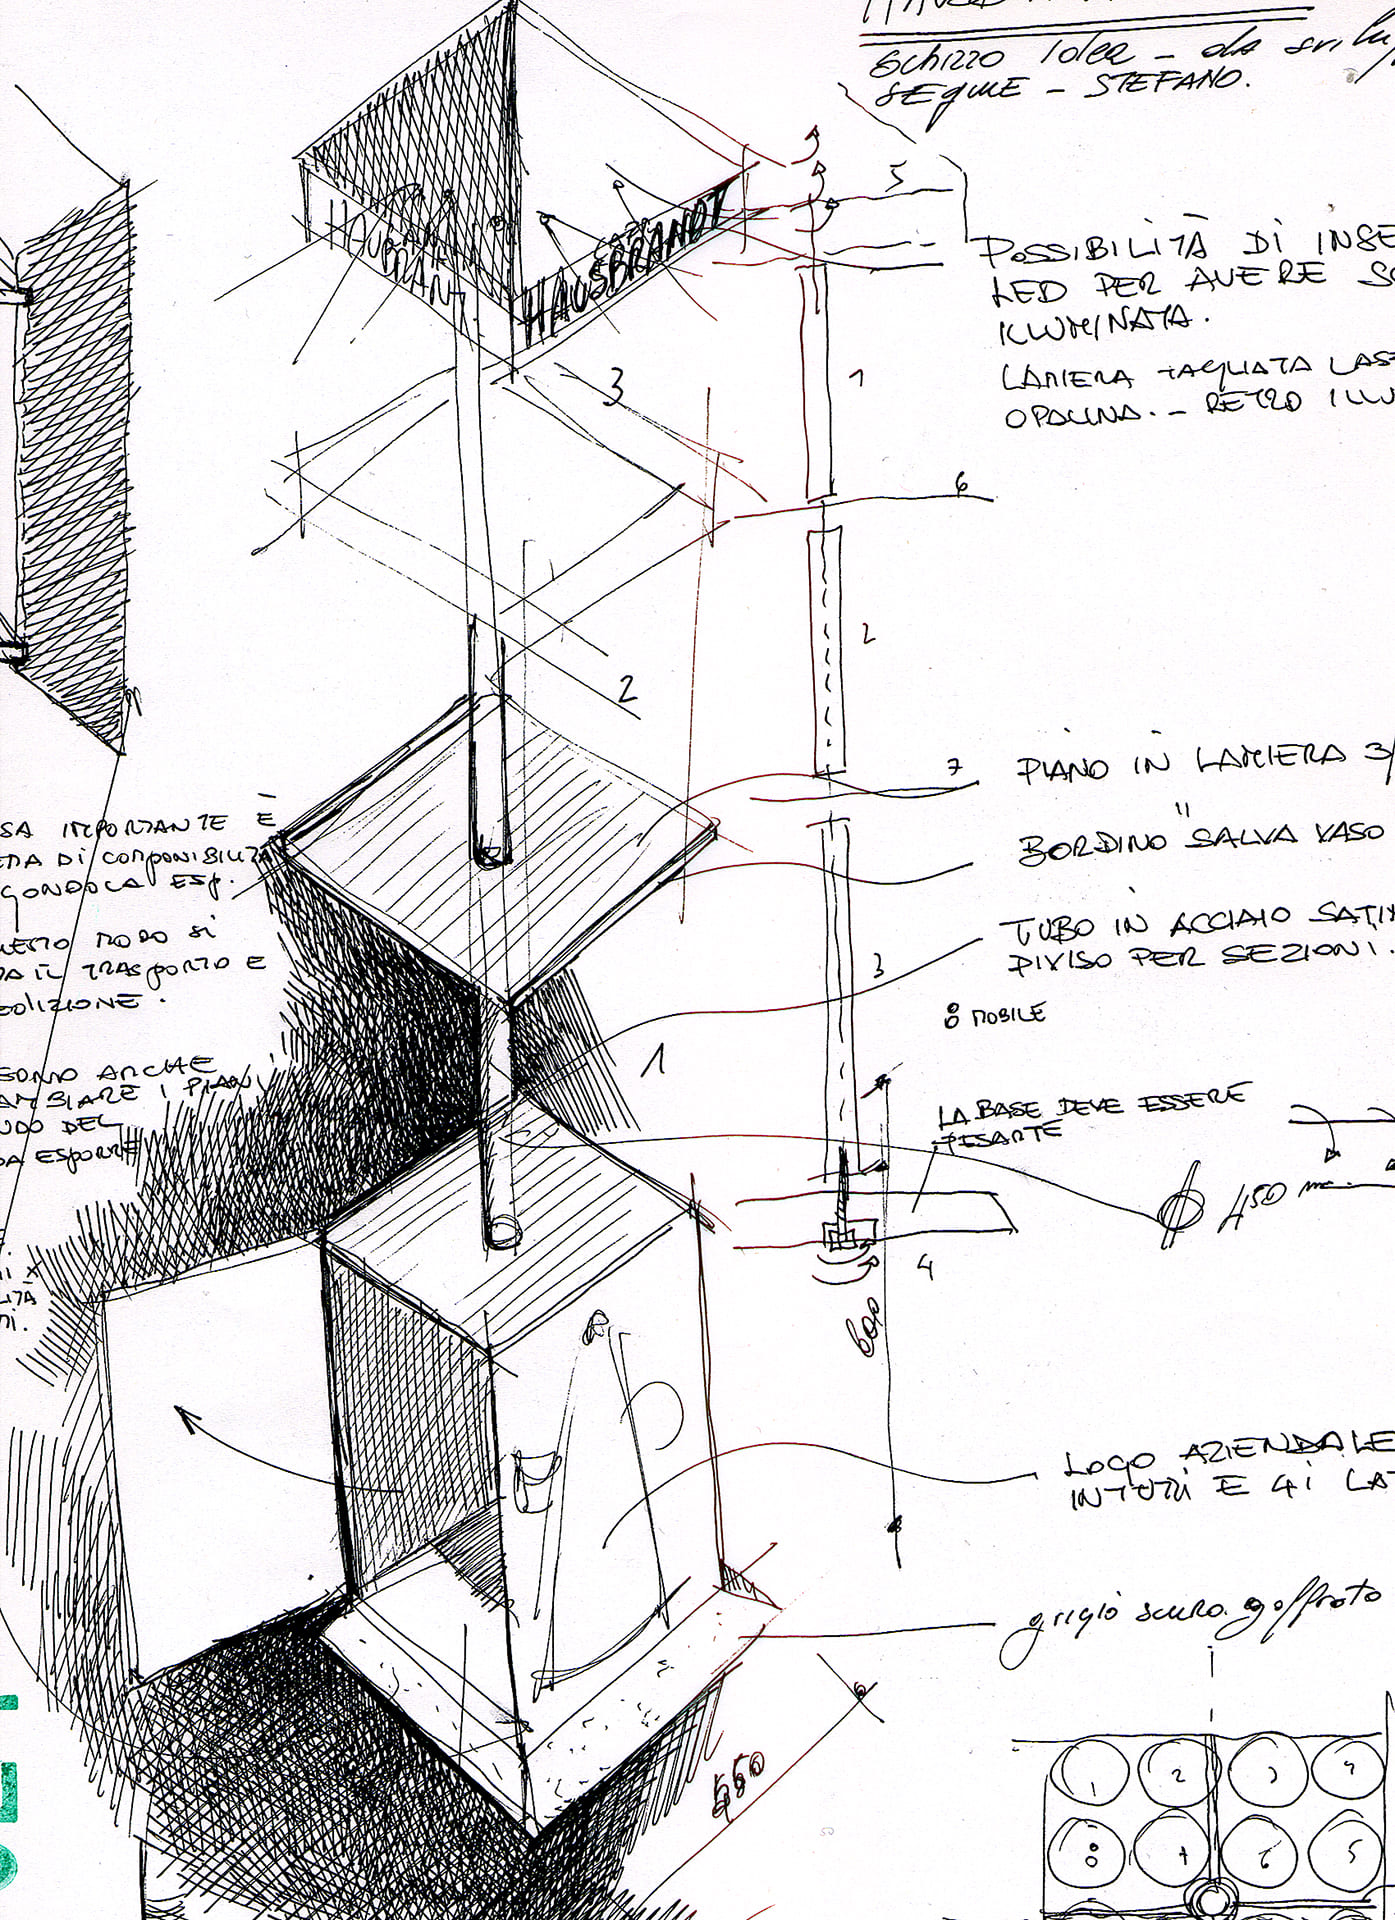 Schizzo Idea - da svilu
SEGUE - STEFANO.
HAUSBRANDT
HAUSBRANDT
5
POSSIBILITÀ DI INSE
LED PER AVERE SC
ILLUMINATA.
LAMIERA TAGLIATA LASE
OPALINA. - RETRO ILLU
3
1
6
2
2
7
PIANO IN LAMIERA 3/
"
BORDINO SALVA VASO
TUBO IN ACCIAIO SATIN
DIVISO PER SEZIONI.
3
8 MOBILE
1
SA IMPORTANTE È
EMA DI COMPONIBILITÀ
GONDOLA ESP.
UESTO MODO SI
DA IL TRASPORTO E
EDIZIONE.
SONO ANCHE
AMBIARE I PIANI
NDO DEL
DA ESPORRE
LITÀ
LA BASE DEVE ESSERE
PESANTE
450 mm.
4
600
LOGO AZIENDALE
IN TUTTI E 4 I LAT
grigio scuro goffrato
1
2
3
4
8
7
6
5